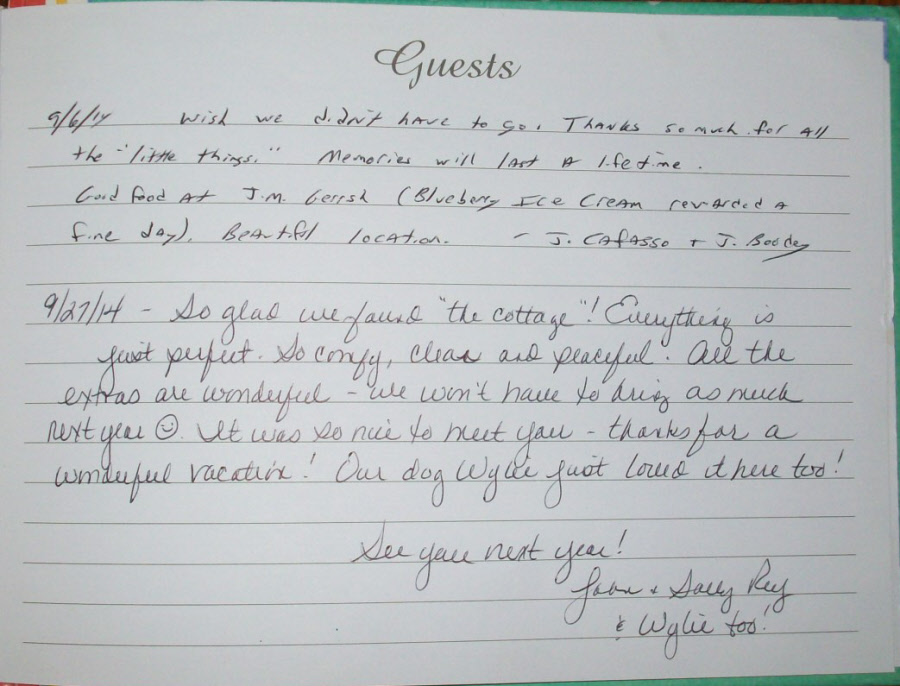 Guests
9/6/14 Wish we didn't have to go. Thanks so much for all
the "little things." Memories will last a lifetime.
Good food at J.M. Gerrish (Blueberry Ice Cream rewarded a
fine day). Beautiful location. - J. Cafasso + J. Boodey
9/27/14 - So glad we found "the cottage"! Everything is
just perfect. So comfy, clean and peaceful. All the
extras are wonderful - we won't have to bring as much
next year ☺. It was so nice to meet you - thanks for a
wonderful vacation! Our dog Wylie just loved it here too!
See you next year!
+ Sally
& Wylie too!